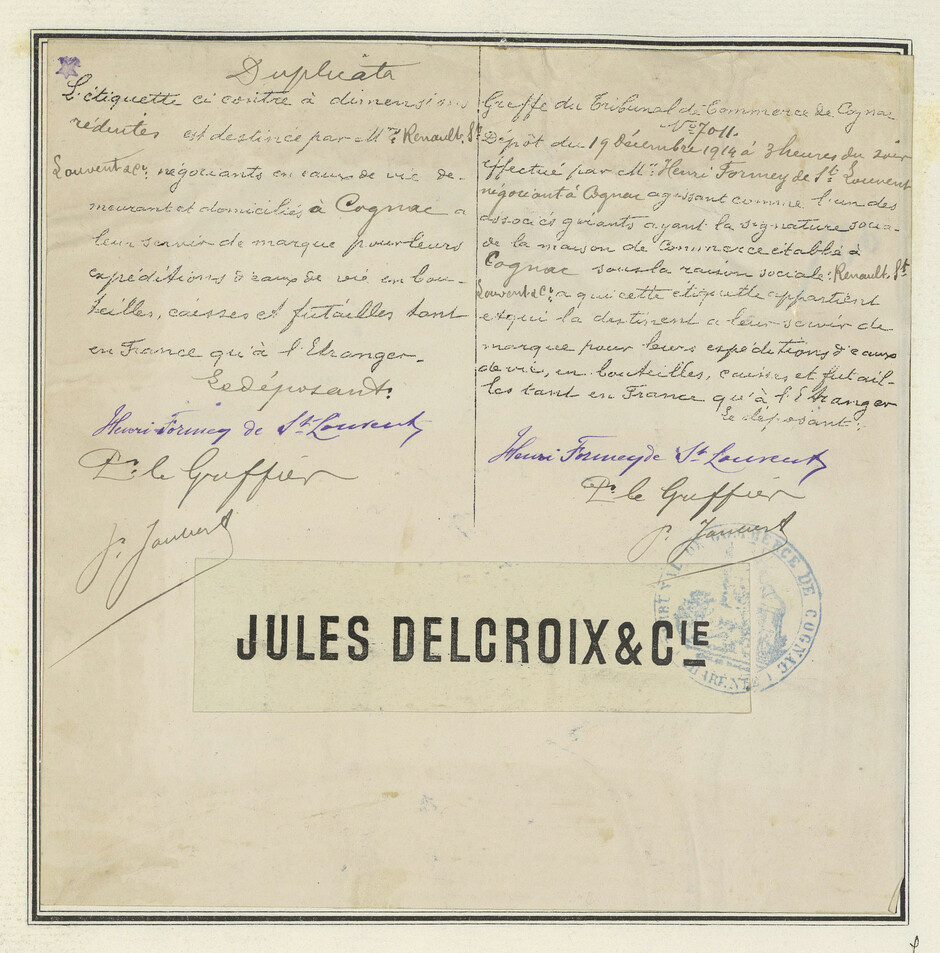 Duplicata
L'étiquette ci contre à dimensions
réduites est destinée par MMrs Renault, St
Louvent & Cie, négociants en eaux de vie de-
meurant et domiciliés à Cognac a
leur servir de marque pour leurs
expéditions d'eaux de vie en bou-
teilles, caisses et futailles tant
en France qu'à l'Etranger.
Le déposant.
Henri Formey de St Lourent
Pr. le Greffier
P. Jaubert
Greffe du Tribunal de Commerce de Cognac
No 7011.
Dépôt du 19 Décembre 1914 à 3 heures du soir
effectué par Mr. Henri Formey de St Louvent
négociant à Cognac agissant comme l'un des
associés gérants ayant la signature socia-
de la maison de Commerce établie à
Cognac sous la raison sociale: Renault, St
Louvent & Cie, a qui cette étiquette appartient
et qui la destinent a leur servir de
marque pour leurs expéditions d'eaux
de vie, en bouteilles, caisses et futail-
les tant en France qu'à l'Etranger
Le déposant:
Henri Formey de St Lourent
Pr. le Greffier
P. Jaubert
TRIBUNAL DE COMMERCE DE COGNAC (CHARENTE)
JULES DELCROIX & CIE